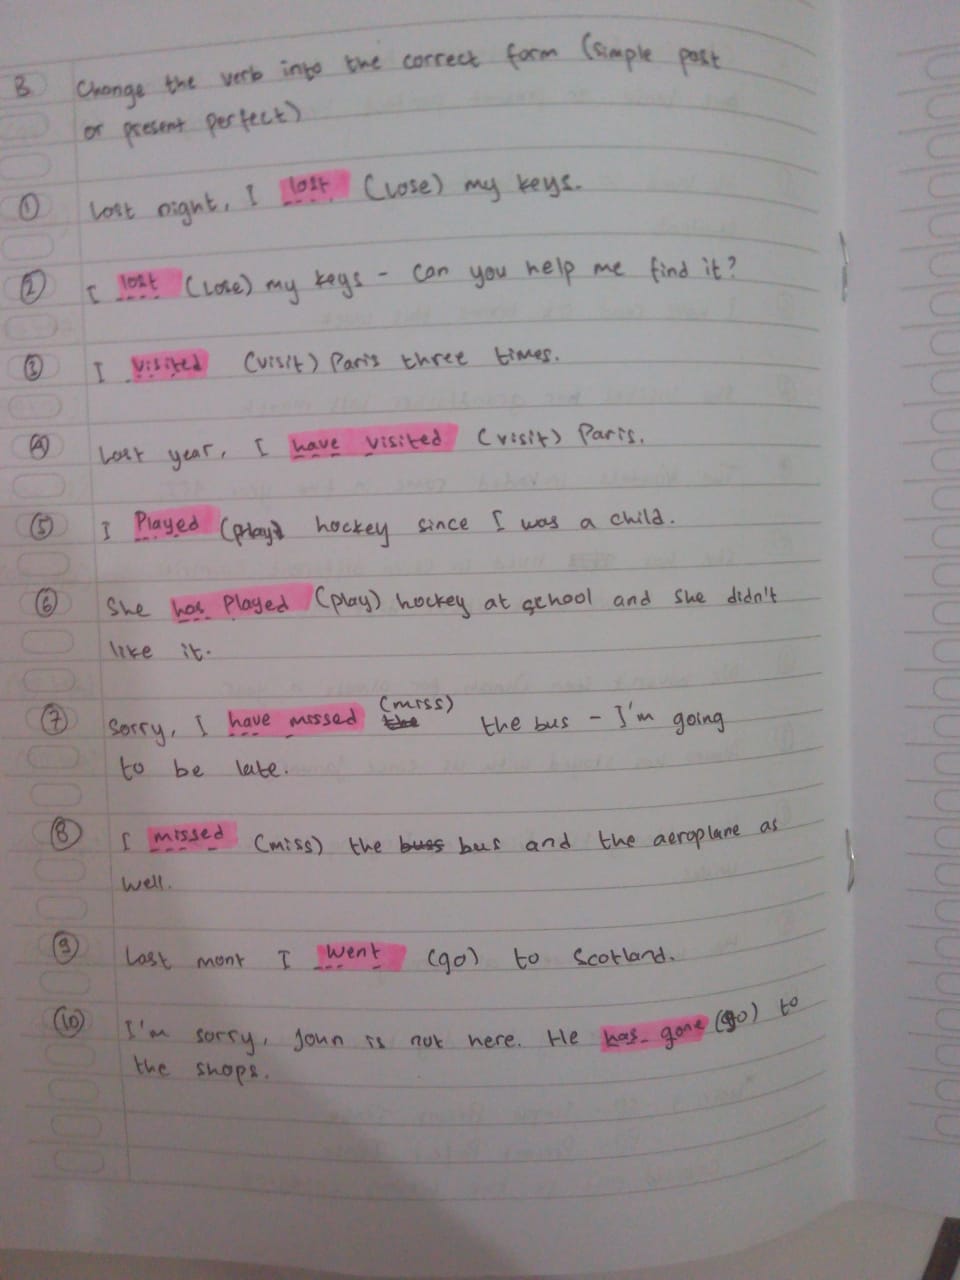 B Change the verb into the correct form (simple past
or present perfect)
① Last night, I lost (Lose) my keys.
② I lost (Lose) my keys - can you help me find it?
③ I visited (visit) Paris three times.
④ Last year, I have visited (visit) Paris.
⑤ I Played (play) hockey since I was a child.
⑥ She has Played (play) hockey at school and she didn't
like it.
⑦ Sorry, I have missed (miss) the bus - I'm going
to be late.
⑧ I missed (miss) the bus and the aeroplane as
well.
⑨ Last mont I went (go) to Scotland.
⑩ I'm sorry, John is not here. He has gone (go) to
the shops.